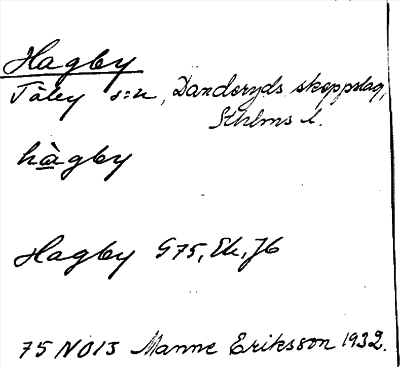 Hagby
Täby s:n, Danderyds skeppslag,
Sthlms l.
hàgby
Hagby G75, Ek, Jb
75 NO13 Manne Eriksson 1932.